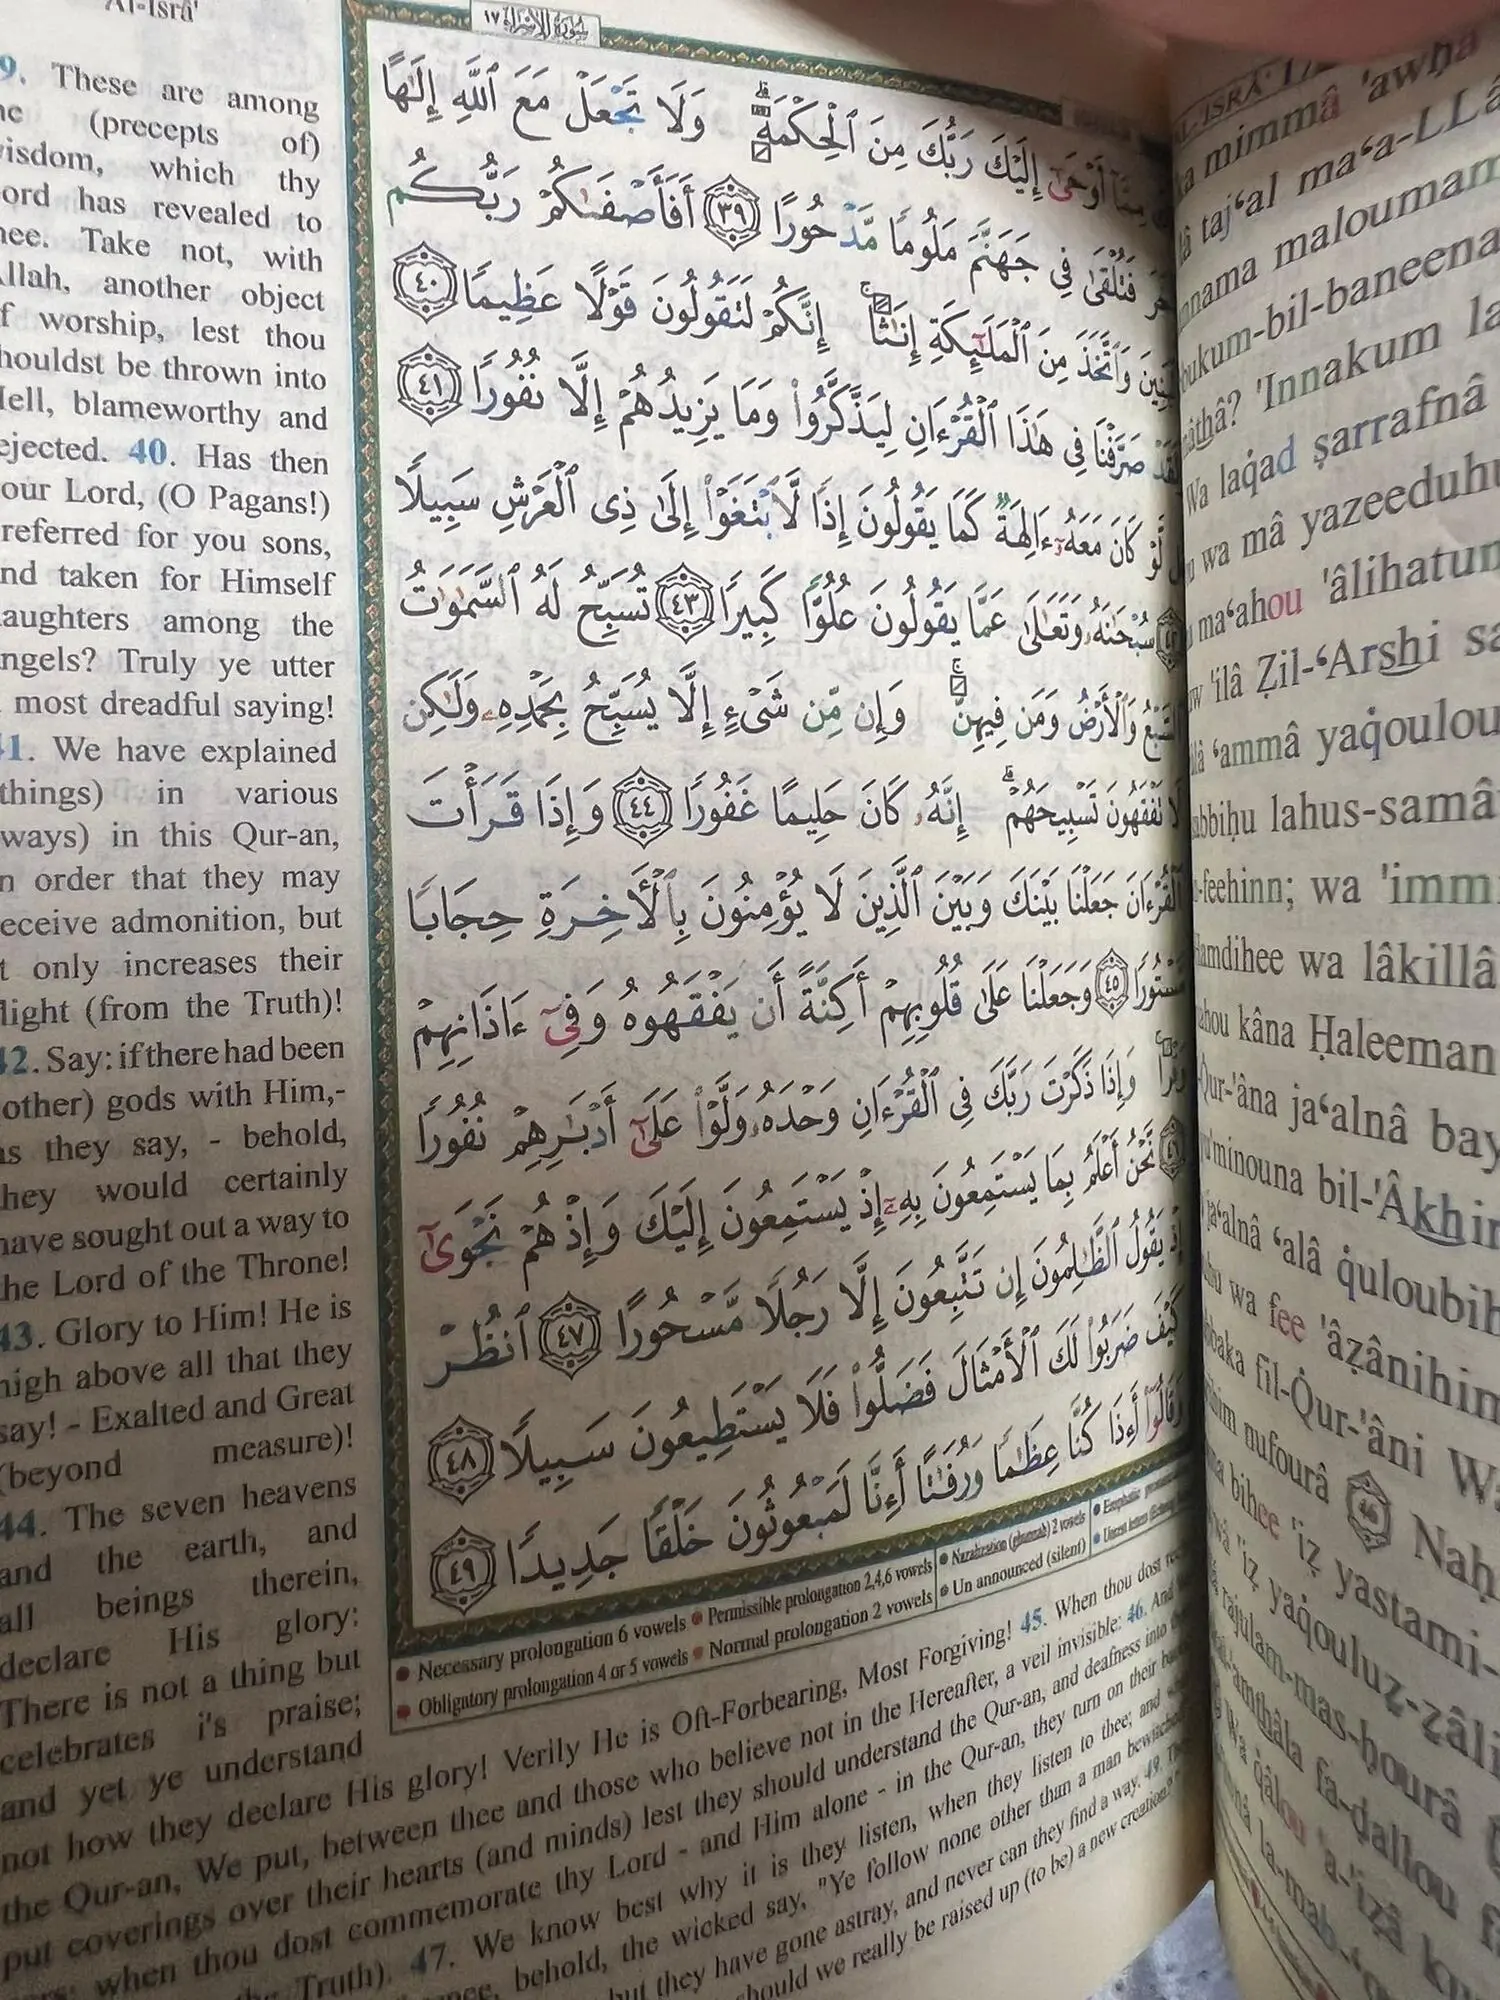 Al-Isrâ'
سورة الإسراء ١٧
9. These are among
(precepts of)
wisdom, which thy
Lord has revealed to
thee. Take not, with
Allah, another object
of worship, lest thou
shouldst be thrown into
Hell, blameworthy and
rejected. 40. Has then
your Lord, (O Pagans!)
preferred for you sons,
and taken for Himself
daughters among the
angels? Truly ye utter
most dreadful saying!
41. We have explained
(things) in various
(ways) in this Qur-an,
in order that they may
receive admonition, but
it only increases their
flight (from the Truth)!
42. Say: if there had been
(other) gods with Him,-
as they say, - behold,
they would certainly
have sought out a way to
the Lord of the Throne!
43. Glory to Him! He is
high above all that they
say! - Exalted and Great
(beyond measure)!
44. The seven heavens
and the earth, and
all beings therein,
declare His glory:
There is not a thing but
celebrates i's praise;
and yet ye understand
مِمَّآ أَوْحَىٰٓ إِلَيْكَ رَبُّكَ مِنَ ٱلْحِكْمَةِ ۗ وَلَا تَجْعَلْ مَعَ ٱللَّهِ إِلَٰهًا
فَتُلْقَىٰ فِى جَهَنَّمَ مَلُومًا مَّدْحُورًا ٣٩ أَفَأَصْفَىٰكُمْ رَبُّكُم
وَٱتَّخَذَ مِنَ ٱلْمَلَٰٓئِكَةِ إِنَٰثًا ۚ إِنَّكُمْ لَتَقُولُونَ قَوْلًا عَظِيمًا ٤٠
صَرَّفْنَا فِى هَٰذَا ٱلْقُرْءَانِ لِيَذَّكَّرُوا۟ وَمَا يَزِيدُهُمْ إِلَّا نُفُورًا ٤١
لَّوْ كَانَ مَعَهُۥٓ ءَالِهَةٌ كَمَا يَقُولُونَ إِذًا لَّٱبْتَغَوْا۟ إِلَىٰ ذِى ٱلْعَرْشِ سَبِيلًا
٤٢ سُبْحَٰنَهُۥ وَتَعَٰلَىٰ عَمَّا يَقُولُونَ عُلُوًّا كَبِيرًا ٤٣ تُسَبِّحُ لَهُ ٱلسَّمَٰوَٰتُ
ٱلسَّبْعُ وَٱلْأَرْضُ وَمَن فِيهِنَّ ۚ وَإِن مِّن شَىْءٍ إِلَّا يُسَبِّحُ بِحَمْدِهِۦ وَلَٰكِن
لَّا تَفْقَهُونَ تَسْبِيحَهُمْ ۗ إِنَّهُۥ كَانَ حَلِيمًا غَفُورًا ٤٤ وَإِذَا قَرَأْتَ
ٱلْقُرْءَانَ جَعَلْنَا بَيْنَكَ وَبَيْنَ ٱلَّذِينَ لَا يُؤْمِنُونَ بِٱلْأَخِرَةِ حِجَابًا
مَّسْتُورًا ٤٥ وَجَعَلْنَا عَلَىٰ قُلُوبِهِمْ أَكِنَّةً أَن يَفْقَهُوهُ وَفِىٓ ءَاذَانِهِمْ
وَقْرًا ۚ وَإِذَا ذَكَرْتَ رَبَّكَ فِى ٱلْقُرْءَانِ وَحْدَهُۥ وَلَّوْا۟ عَلَىٰٓ أَدْبَٰرِهِمْ نُفُورًا
٤٦ نَّحْنُ أَعْلَمُ بِمَا يَسْتَمِعُونَ بِهِۦٓ إِذْ يَسْتَمِعُونَ إِلَيْكَ وَإِذْ هُمْ نَجْوَىٰٓ
إِذْ يَقُولُ ٱلظَّٰلِمُونَ إِن تَتَّبِعُونَ إِلَّا رَجُلًا مَّسْحُورًا ٤٧ ٱنظُرْ
كَيْفَ ضَرَبُوا۟ لَكَ ٱلْأَمْثَالَ فَضَلُّوا۟ فَلَا يَسْتَطِيعُونَ سَبِيلًا ٤٨
وَقَالُوٓا۟ أَءِذَا كُنَّا عِظَٰمًا وَرُفَٰتًا أَءِنَّا لَمَبْعُوثُونَ خَلْقًا جَدِيدًا ٤٩
Necessary prolongation 6 vowels Permissible prolongation 2,4,6 vowels Nazalization (ghunnah) 2 vowels Emphatic
Obligatory prolongation 4 or 5 vowels Normal prolongation 2 vowels Un announced (silent) Unrest letters
not how they declare His glory! Verily He is Oft-Forbearing, Most Forgiving! 45. When thou dost
the Qur-an, We put, between thee and those who believe not in the Hereafter, a veil invisible: 46. And
put coverings over their hearts (and minds) lest they should understand the Qur-an, and deafness into
when thou dost commemorate thy Lord - and Him alone - in the Qur-an, they turn on their
Truth). 47. We know best why it is they listen, when they listen to thee; and
behold, the wicked say, "Ye follow none other than a man bewitched
but they have gone astray, and never can they find a way. 49.
should we really be raised up (to be) a new creation?"
AL-ISRÂ' 17
mimmâ 'awḥa
lâ taj'al ma'a-LLâ
maloumam
bukum-bil-baneena
'Innakum la
Wa laq̇ad ṣarrafnâ
wa mâ yazeeduhu
ma'ahou 'âlihatun
'ilâ Ẓil-'Arshi sa
'ammâ yaq̇oulou
lahus-samâ
feehinn; wa 'imm
Hamdihee wa lâkillâ
kâna Ḥaleeman
Qur-'âna ja'alnâ bay
bil-'Âkhir
ja'alnâ 'alâ q̇uloubih
wa fee 'âẓânihim
fil-Q̇ur-'âni Wa
nufourâ 46 Naḥ
bihee 'iẓ yastami-
'iẓ yaq̇ouluẓ-ẓâli
rajulam-mas-ḥourâ
'amthâla fa-ḍallou
q̇âlou 'a-'iẓâ ku
la-mab-'o